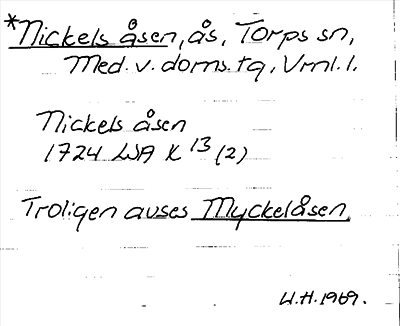 *Nickels åsen, ås, Torps sn,
Med. v. doms. tg, Vrml. l.
Nickels åsen
1724 LSA K 13 (2)
Troligen avses Myckelåsen.
W.H. 1969.